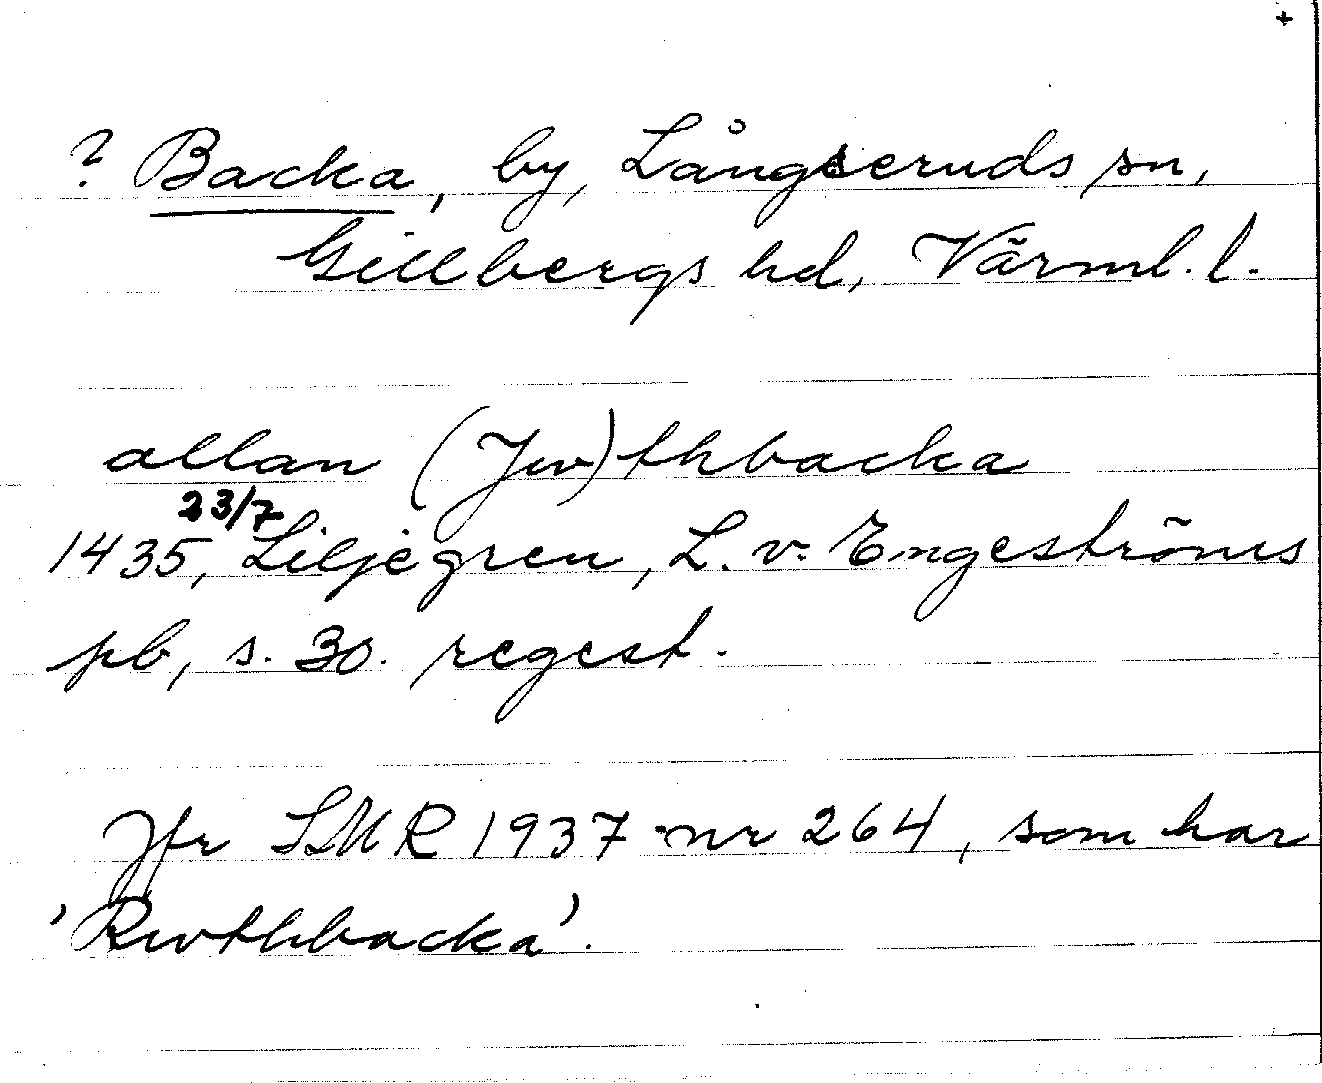 +
? Backa, by, Långseruds sn,
Gillbergs hd, Värml. l.
allan (Jw)thbacka
23/7
1435, Liljegren, L. v. Engeströms
pb, s. 30. regest.
Jfr SMR 1937 nr 264, som har
'Rwthbacka'.